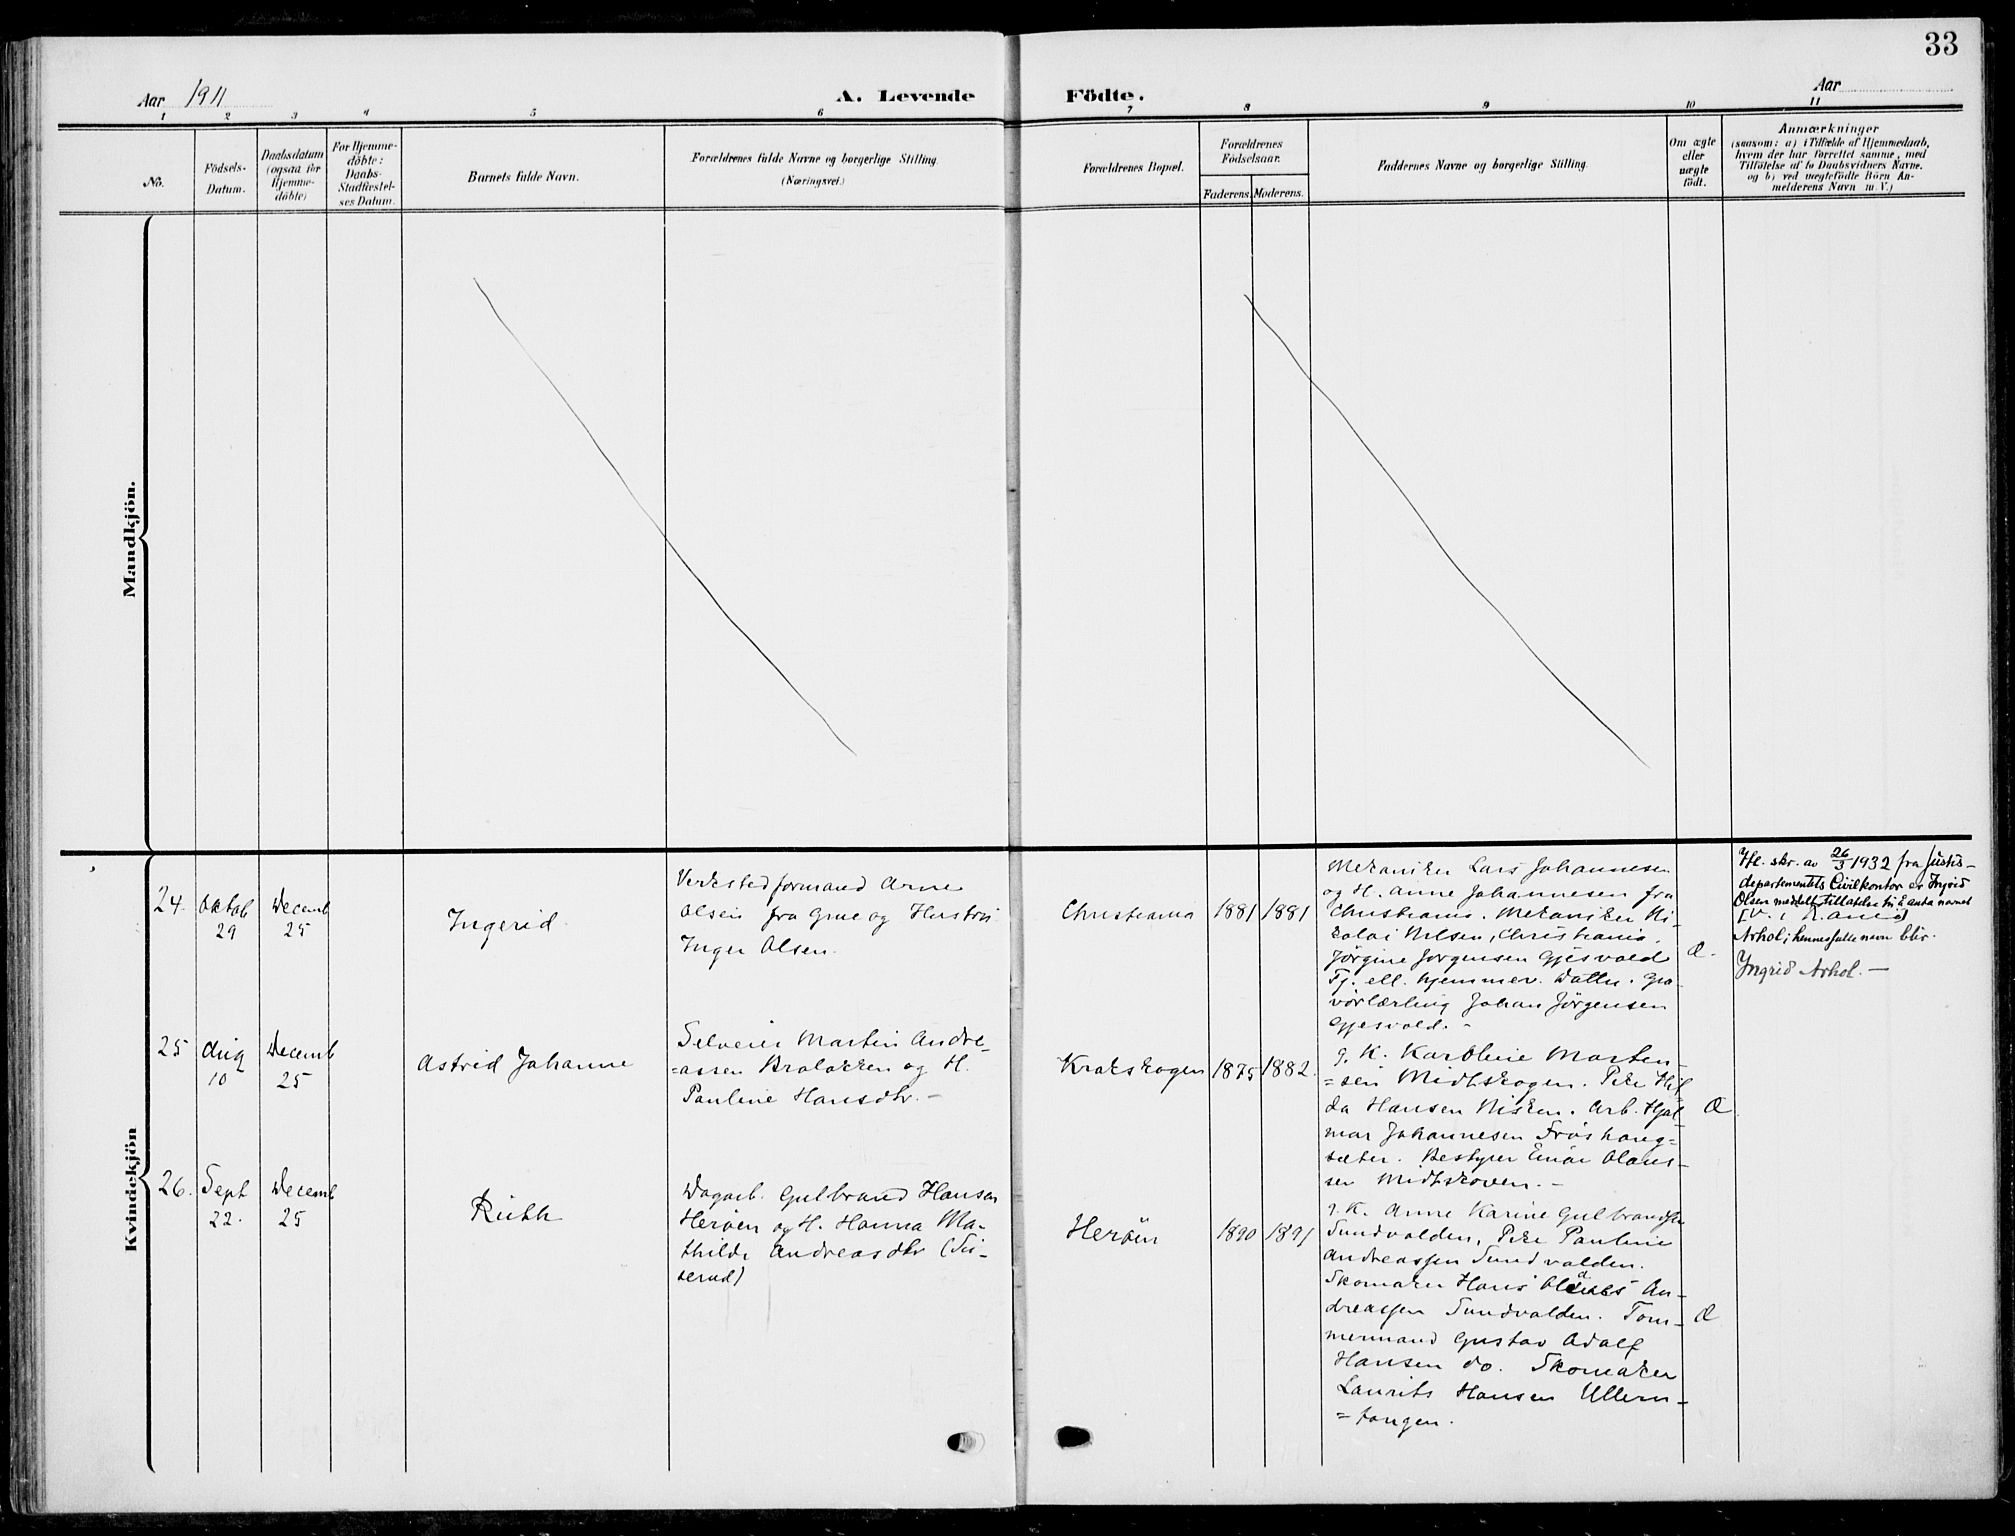 33
Aar 1911
A. Levende
Födte.
Aar
1 2 3 4 5 6 7 8 9 10 11
No.
Födsels-
Datum.
Daabsdatum
(ogsaa for
Hjemme-
døbte)
For Hjemme-
døbte:
Daabs-
Stadfæstel-
ses Datum.
Barnets fulde Navn.
Forældrenes fulde Navne og borgerlige Stilling.
(Næringsvei.)
Forældrenes Bopæl.
Forældrenes
Födselsaar.
Faderens. Moderens.
Faddernes Navne og borgerlige Stilling.
Om ægte
eller
uægte
födt.
Anmærkninger
(saasom: a) i Tilfælde af Hjemmedaab,
hvem der har forrettet samme, med
Tilföielse af to Daabsvidners Navne.
og b) ved uægtefödte Börn An-
melderens Navn m. V.)
Mandkjön.
Kvindekjön
24.
Oktob
29
Decemb
25
Ingerid
Verkstedformand Arne
Olsen fra Grue og Hustru
Inger Olsen.
Christiania
1881
1881
Mekaniker Lars Johannesen
og H. Anne Johannesen fra
Christiania. Mekaniker Ni-
kolai Nilsen, Christiania.
Jörgine Jörgensen Gjesvold
Tj. ell. hjemmev. Datter. Gra-
vörlærling Johan Jörgensen
Gjesvold. -
Æ.
Ifl. skr. av 26/3 1932 fra Justis-
departementets Civilkontor er Ingrid
Olsen meddelt tillatelse til å anta navnet
Arhol; hennes fulle navn blir
Ingrid Arhol. —
25
Aug
10
Decemb
25
Astrid Johanne
Selveier Martin Andre-
=assen Braloken og H.
Pauline Hansdtr. -
Krokskogen
1875
1882.
g. K. Karoline Morten-
=sen Midtskogen. Pike Hil-
da Hansen Nisken. Arb. Hjal-
mar Johannesen Fröshaug-
sæter. Bestyrer Einar Olaus-
sen Midtskoven. -
Æ
26.
Sept
22.
Decemb
25
Ruth
Dagarb. Gulbrand Hansen
Heröen og H. Hanna Ma-
thilde Andreasdtr
Heröen
1890
1891
g. K. Anne Karine Gulbrandsen
Sundvolden, Pike Pauline
Andreassen Sundvolden.
Skomaker Hans An-
dreassen Sundvolden. Töm-
mermand Gustav Adolf
Hansen do. Skomaker
Laurits Hansen Ullern-
=tangen.
Æ